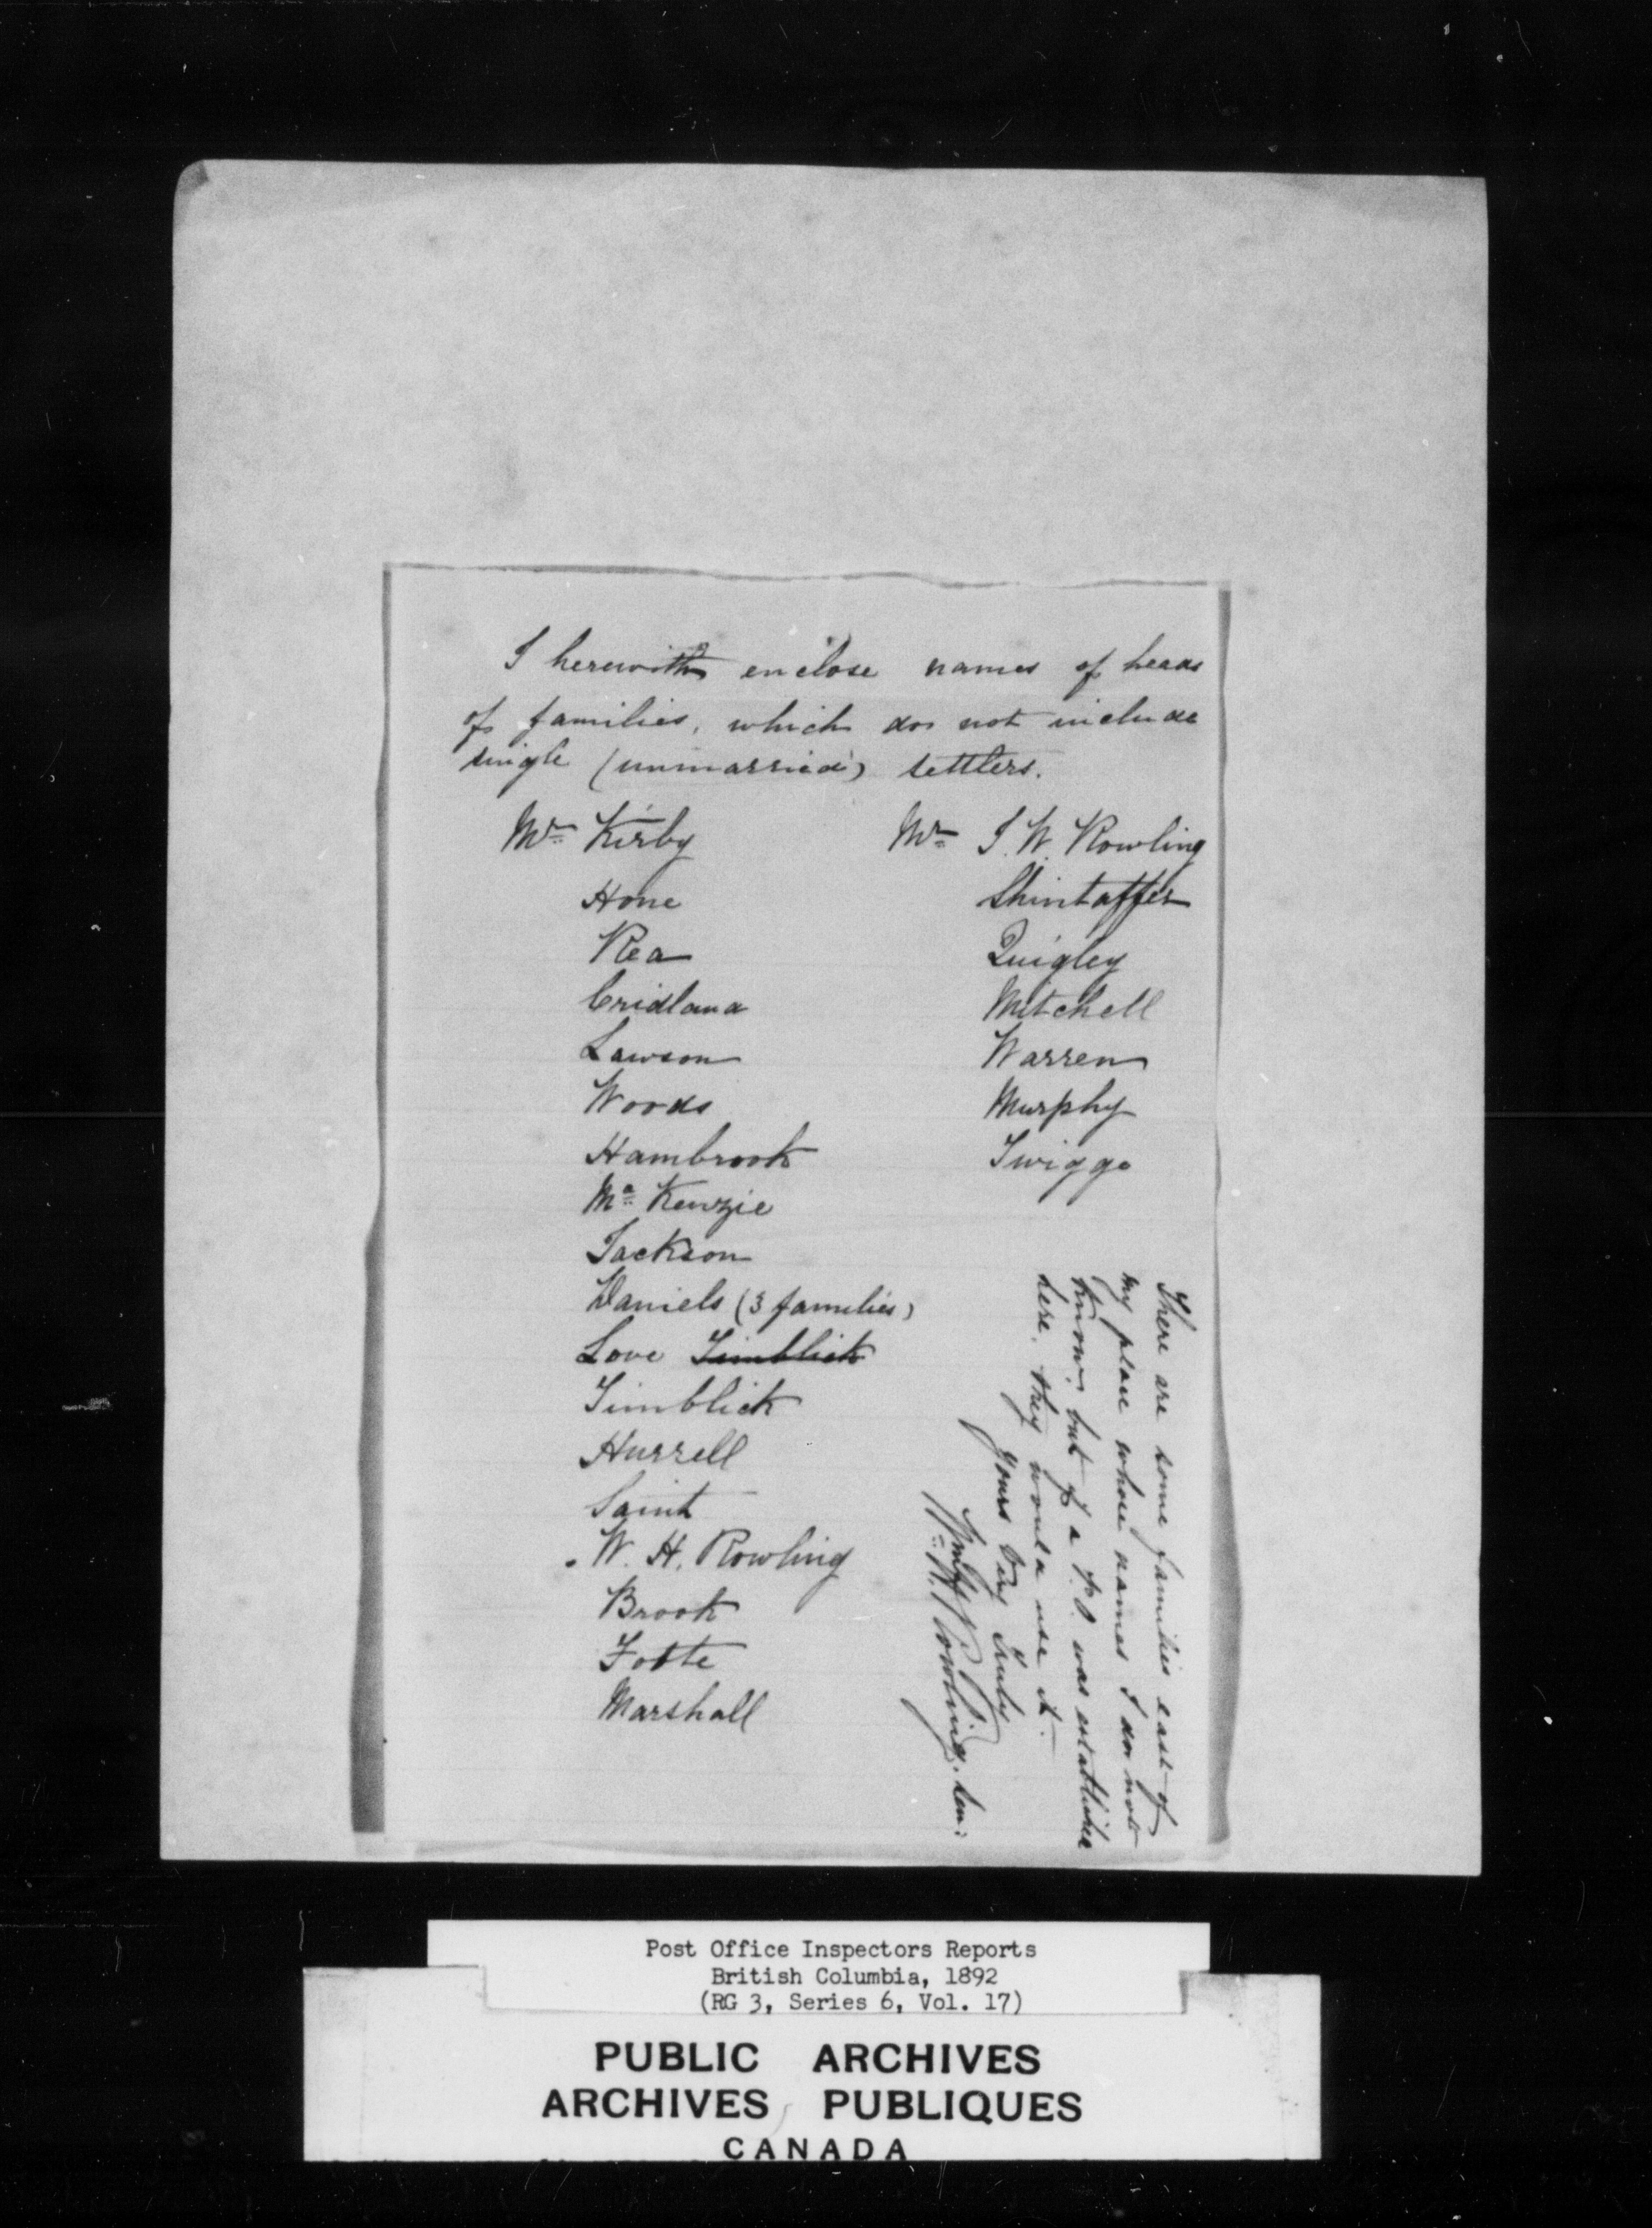 I herewith enclose names of heads
of families, which do not include
single (unmarried) settlers.
Mr Kirby
Hone
Rea
Cridland
Lawson
Woods
Hambrook
Mc Kenzie
Jackson
Daniels (3 families)
Love Timblick
Timblick
Hurrell
Saint
W. H. Rowling
Brook
Foote
Marshall
Mr J. W. Rowling
Shintaffer
Quigley
Mitchell
Warren
Murphy
Twigge
There are some families east of
my place whose names I do not
know, but if a P.O. was established
here, they would use it.
Yours Very Truly
Wm H. Rowling, Sen:
Post Office Inspectors Reports
British Columbia, 1892
(RG 3, Series 6, Vol. 17)
PUBLIC ARCHIVES
ARCHIVES PUBLIQUES
CANADA